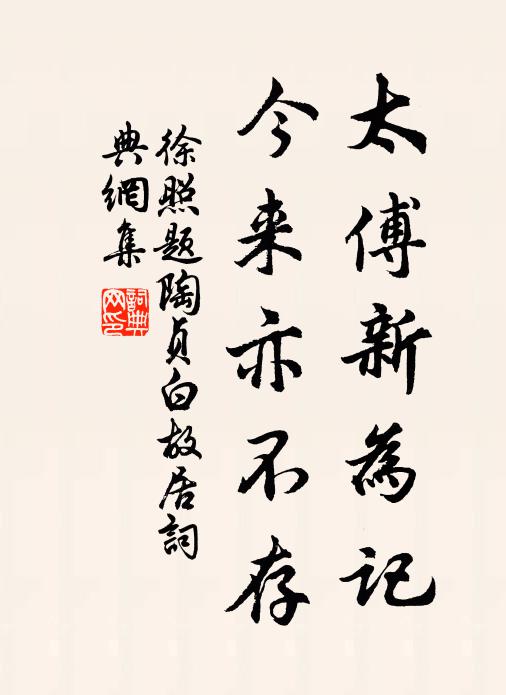 太傅新為記
今来亦不存
徐照题陶貞白故居詞
典網集
詞典
网印